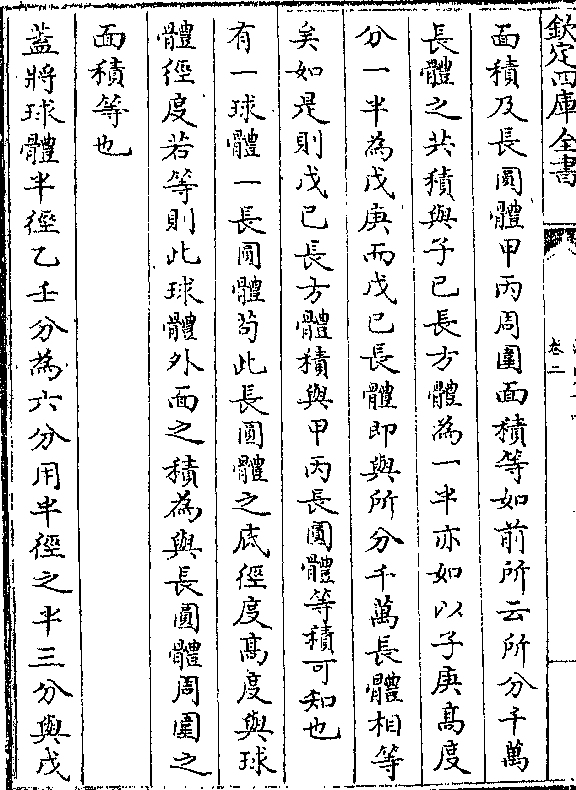 欽定四庫全書
卷二
面積及長圓體甲丙周圍面積等如前所云所分千萬
長體之共積與子已長方體為一半亦如以子庚髙度
分一半為戊庚而戊已長體即與所分千萬長體相等
矣如是則戊已長方體積與甲丙長圓體等積可知也
有一球體一長圓體茍此長圓體之底徑度髙度與球
體徑度若等則此球體外面之積為與長圓體周圍之
面積等也
葢將球體半徑乙壬分為六分用半徑之半三分與戊